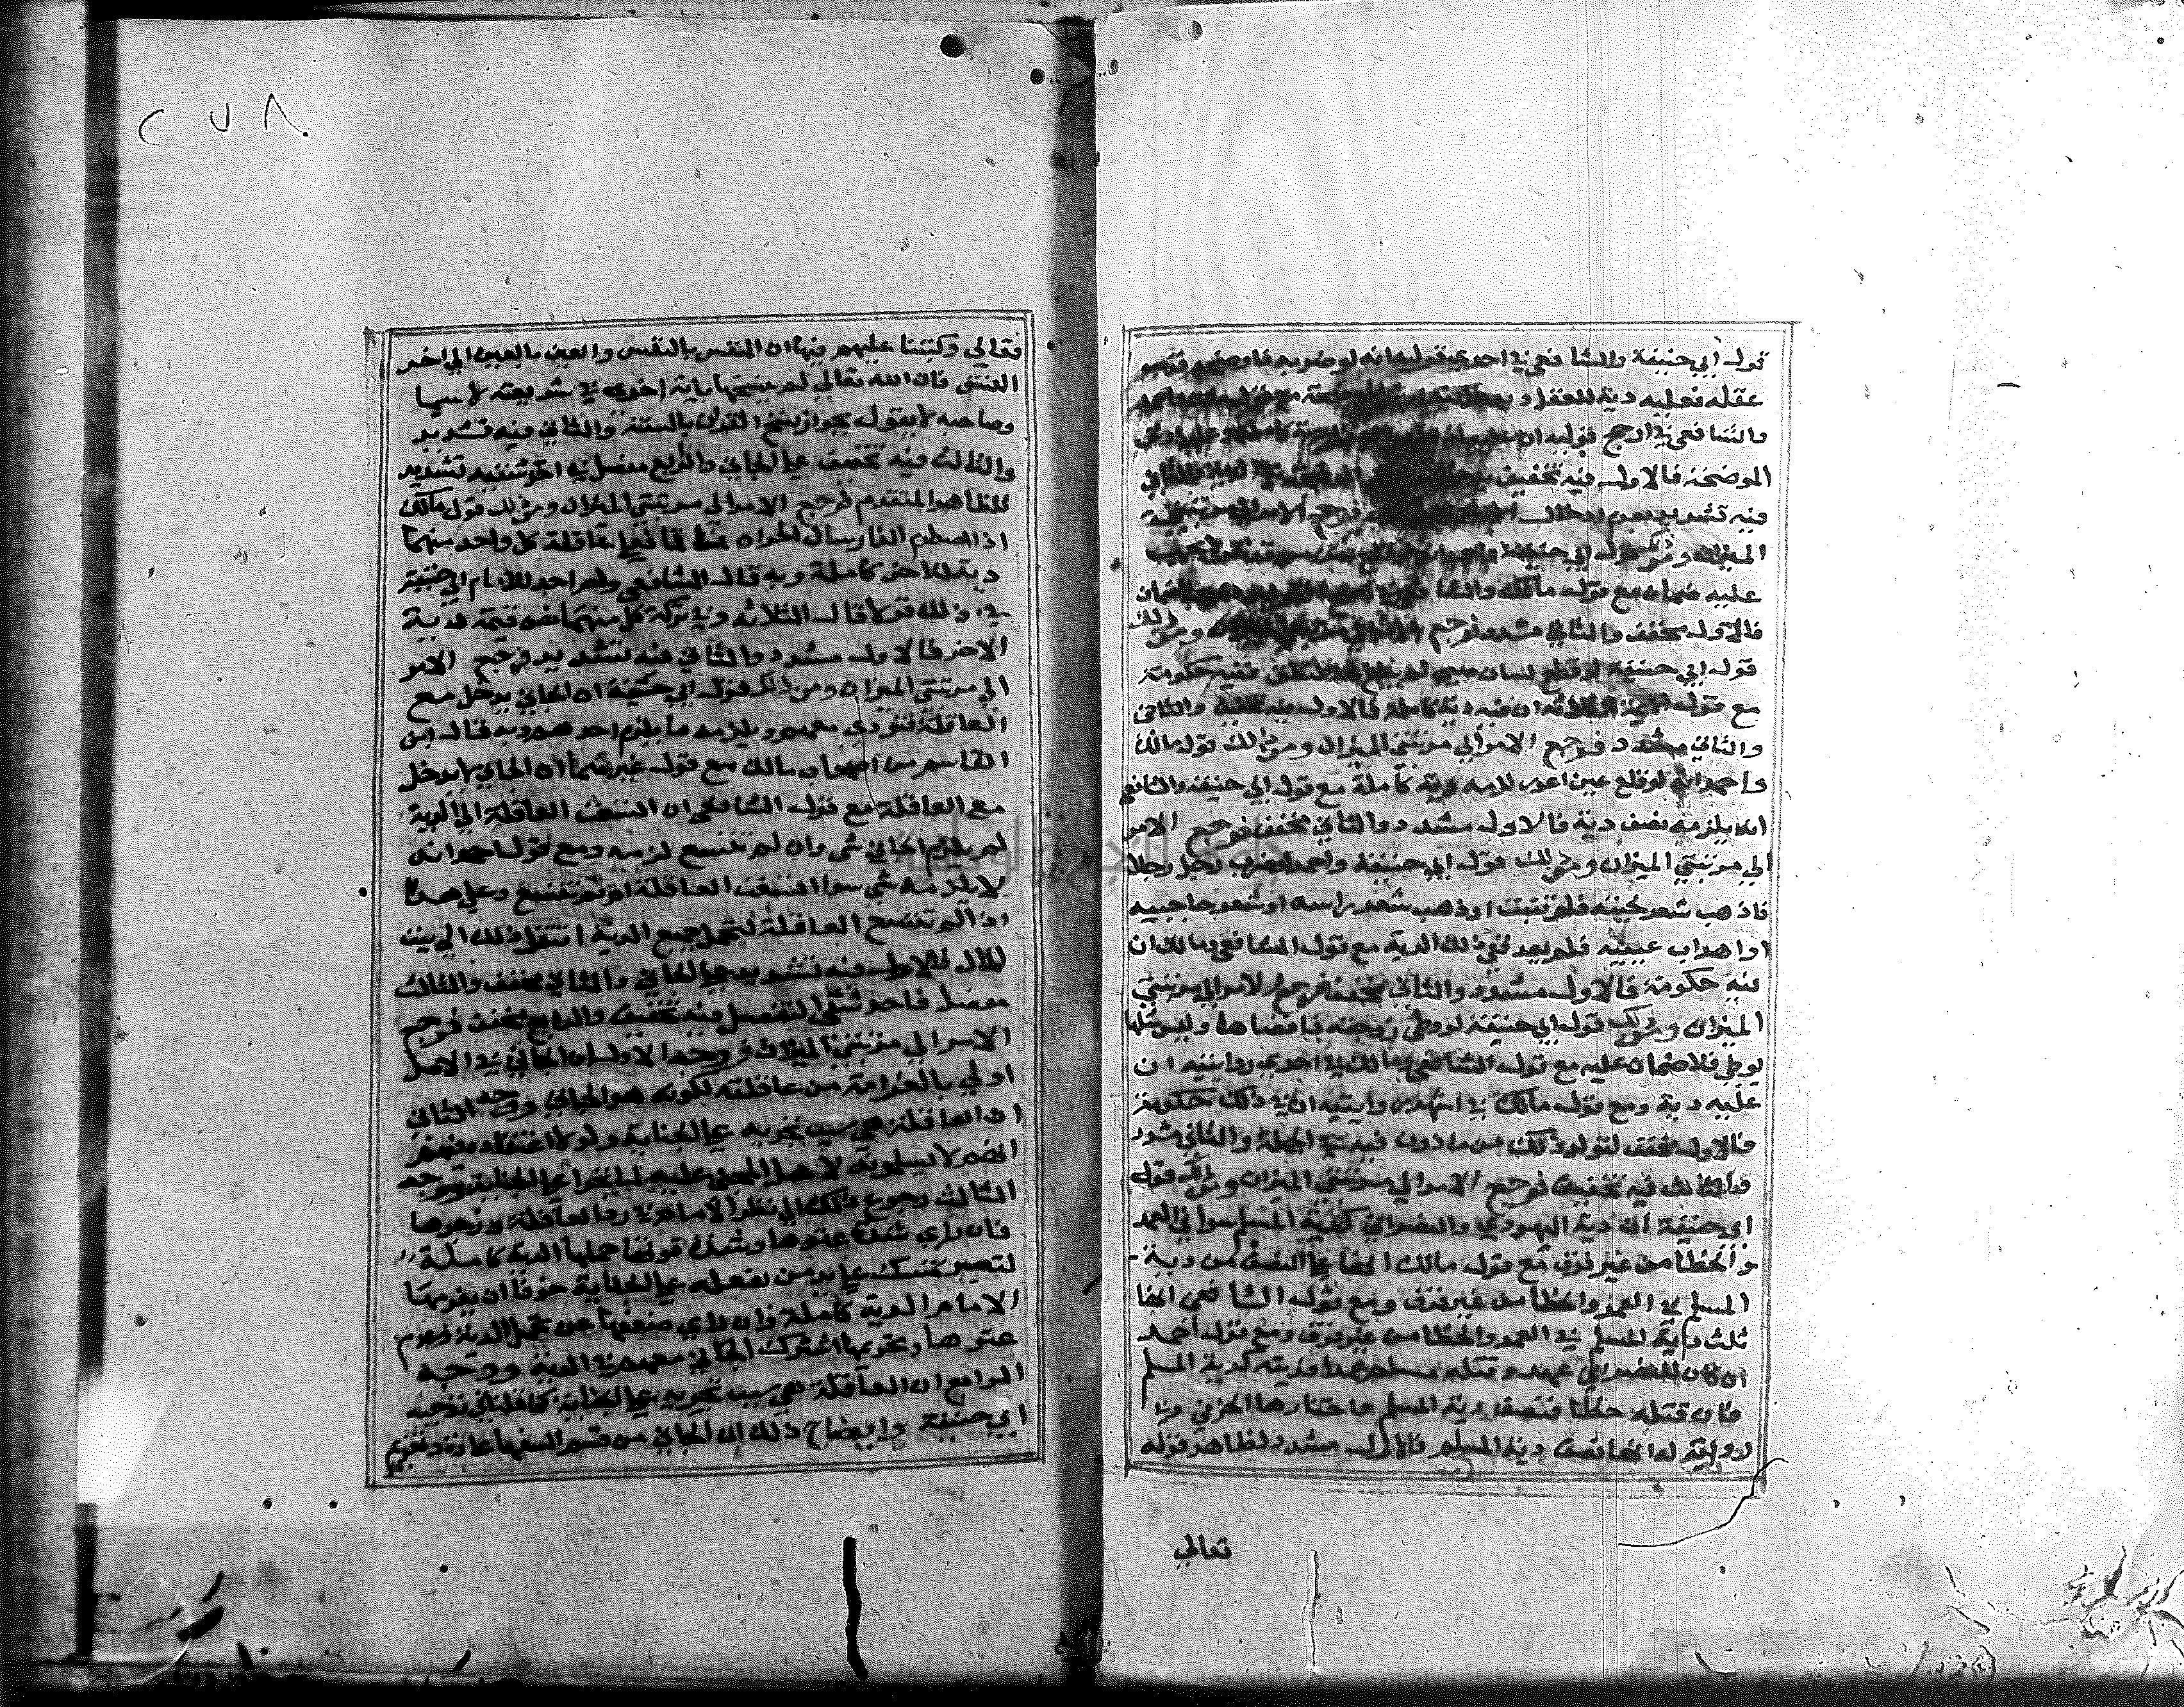 قول ابي حنيفة والشافعي في احدى قوليه انه لو ضربه فاوضحه فذهب
عقله فعليه دية للعقل و
والشافعي في ارجح قوليه ان
الموضحة فالاول فيه تخفيف
فيه تشديد بعدم ادخال فرجع الامر الى مرتبتي
الميزان ومن ذلك قول ابي حنيفة
عليه ضمان مع قول مالك والشافعي
فالاول مخفف والثاني مشدد فرجع ومن ذلك
قول ابي حنيفة لو قطع لسان ففيه حكومة
مع قول الثلاثة ان فيه دية كاملة فالاول فيه والثاني
والثاني مشدد فرجع الامر الى مرتبتي الميزان ومن ذلك قول مالك
واحمد انه لو قلع عين اعور لزمه دية كاملة مع قول ابي حنيفة والشافعي
انه يلزمه نصف دية فالاول مشدد والثاني مخفف فرجع الامر
الى مرتبتي الميزان ومن ذلك قول ابي حنيفة واحمد لو ضرب رجل رجلا
فاذهب شعر لحيته فلم تنبت او ذهب شعر راسه او شعر حاجبيه
او اهداب عينيه فلم يعد ففي ذلك الدية مع قول الشافعي ومالك ان
فيه حكومة فالاول مشدد والثاني مخفف فرجع الامر الى مرتبتي
الميزان ومن ذلك قول ابي حنيفة لو وطى زوجته فافضاها وليس مثلها
يوطى فلا ضمان عليه مع قول الشافعي ومالك في احدى روايتيه ان
عليه دية ومع قول مالك في اشهر روايتيه ان في ذلك حكومة
فالاول مخفف لتولد ذلك من ماذون فيه في الجملة والثاني مشدد
والثالث فيه تخفيف فرجع الامر الى مرتبتي الميزان ومن ذلك قول
ابي حنيفة ان دية اليهودي والنصراني كدية المسلم سوا في العمد
والخطا من غير فرق مع قول مالك انها على النصف من دية
المسلم في العمد والخطا من غير فرق ومع قول الشافعي انها
ثلث دية المسلم في العمد والخطا من غير فرق ومع قول احمد
ان كان للنصراني عهد وقتله مسلم عمدا فديته كدية المسلم
فان قتله خطا فنصف دية المسلم واختارها الخرقي وفي
رواية له انها نصف دية المسلم فالاول مشدد لظاهر قوله
تعالى
٢٧٨
فقالى وكتبنا عليهم فيها ان النفس بالنفس والعين بالعين الى اخر
النسق فان الله تعالى لم ينسخها باية اخرى في شريعته لا سيما
وصاحبه لا يقول بجواز نسخ القران بالسنة والثاني فيه تشديد
والثالث فيه تخفيف على الجاني والرابع مفصل في احد شقيه تشديد
للظاهر المتقدم فرجع الامر الى مرتبتي الميزان ومن ذلك قول مالك
اذا اصطدم الفارسان الحران فماتا فعلى عاقلة كل واحد منهما
دية الاخر كاملة وبه قال الشافعي واحمد للامام ابي حنيفة
في ذلك قولان الثلاثة وفي تركة كل منهما نصف قيمة دية
الاخر فالاول مشدد والثاني فيه تشديد فرجع الامر
الى مرتبتي الميزان ومن ذلك قول ابي حنيفة ان الجاني يدخل مع
العاقلة فيودي معهم ويلزمه ما يلزم احدهم وبه قال ابن
القاسم من اصحاب مالك مع قول غيرهما ان الجاني لا يدخل
مع العاقلة مع قول الشافعي ان اتسعت العاقلة الى الدية
لم يلزم الجاني شي وان لم تتسع لزمه ومع قول احمد انه
لا يلزمه شي سوا اتسعت العاقلة او لم تتسع وعلى هذا
اذا لم تتسع العاقلة لتحمل جميع الدية انتقل ذلك الى بيت
المال فالاول فيه تشديد على الجاني والثاني مخفف والثالث
مفصل فاحد شقي التفصيل فيه تخفيف والرابع مخفف فرجع
الامر الى مرتبتي الميزان ووجه الاول ان الجاني في الاصل
اولى بالغرامة من عاقلته لكونه هو الجاني ووجه الثاني
ان العاقلة هي سبب تجريه على الجناية ولولا اعتقاده منهم
انهم لا يسلمونه لاهل المجني عليه لما تجرا على الجناية ووجه
الثالث رجوع ذلك الى نظر الامام في ردع العاقلة وزجرها
فان راى شدة عتوها وشدة قوتها حملها الدية كاملة
لتصير تمسك على يد من تفعله على الجناية خوفا ان يغرمها
الامام الدية كاملة فان راى ضعفها عن تحمل الدية وعدم
عتوها وتجريها اشترك الجاني معهم في الدية ووجه
الرابع ان العاقلة هي سبب تجريه على الجناية كما قلنا في توجيه
ابي حنيفة وايضاح ذلك ان الجاني من قسم السفها عادة وتغريم